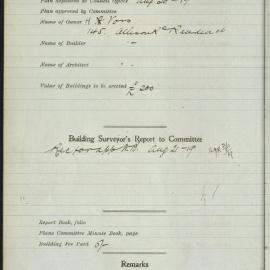 Plan deposited at Council Offices Aug 20-19
Plan approved by Committee
Name of Owner H E Voss
145.
Name of Builder "
Name of Architect "
Value of Buildings to be erected £ 200
Building Surveyor's Report to Committee
Rec for app Aug 21-19
Report Book, folio
Plans Committee Minute Book, page
Building Fee Paid 5/-
Remarks